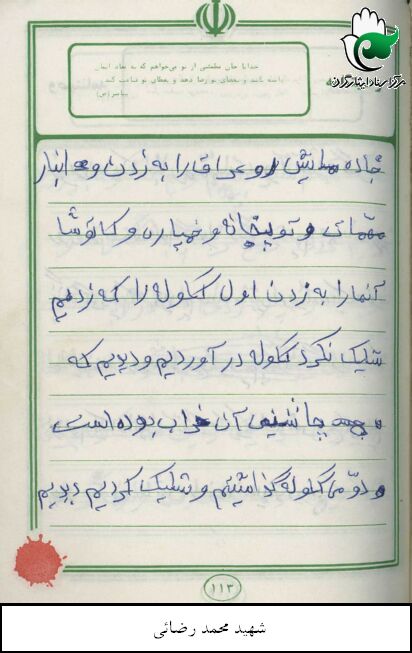 مرکز اسناد ایثارگران
خدایا جان مطمئنی از تو می‌خواهم که به معاد ایمان
داشته باشد و بقضای تو رضا دهد و بعطای تو قناعت کند
پیامبر(ص)
جاده هایش رو عراق را به زدن و انبار
مهمات و توپخانه و خمپاره و کاتوشا
آنها را به زدن اول گلوله را که زدیم
شلیک نکرد گلوله در آوردیم و دیدیم که
چاشنی آن خراب بوده است
و دومی گلوله گذاشتیم و شلیک کردیم دیدیم
۱۱۳
شهید محمد رضائی